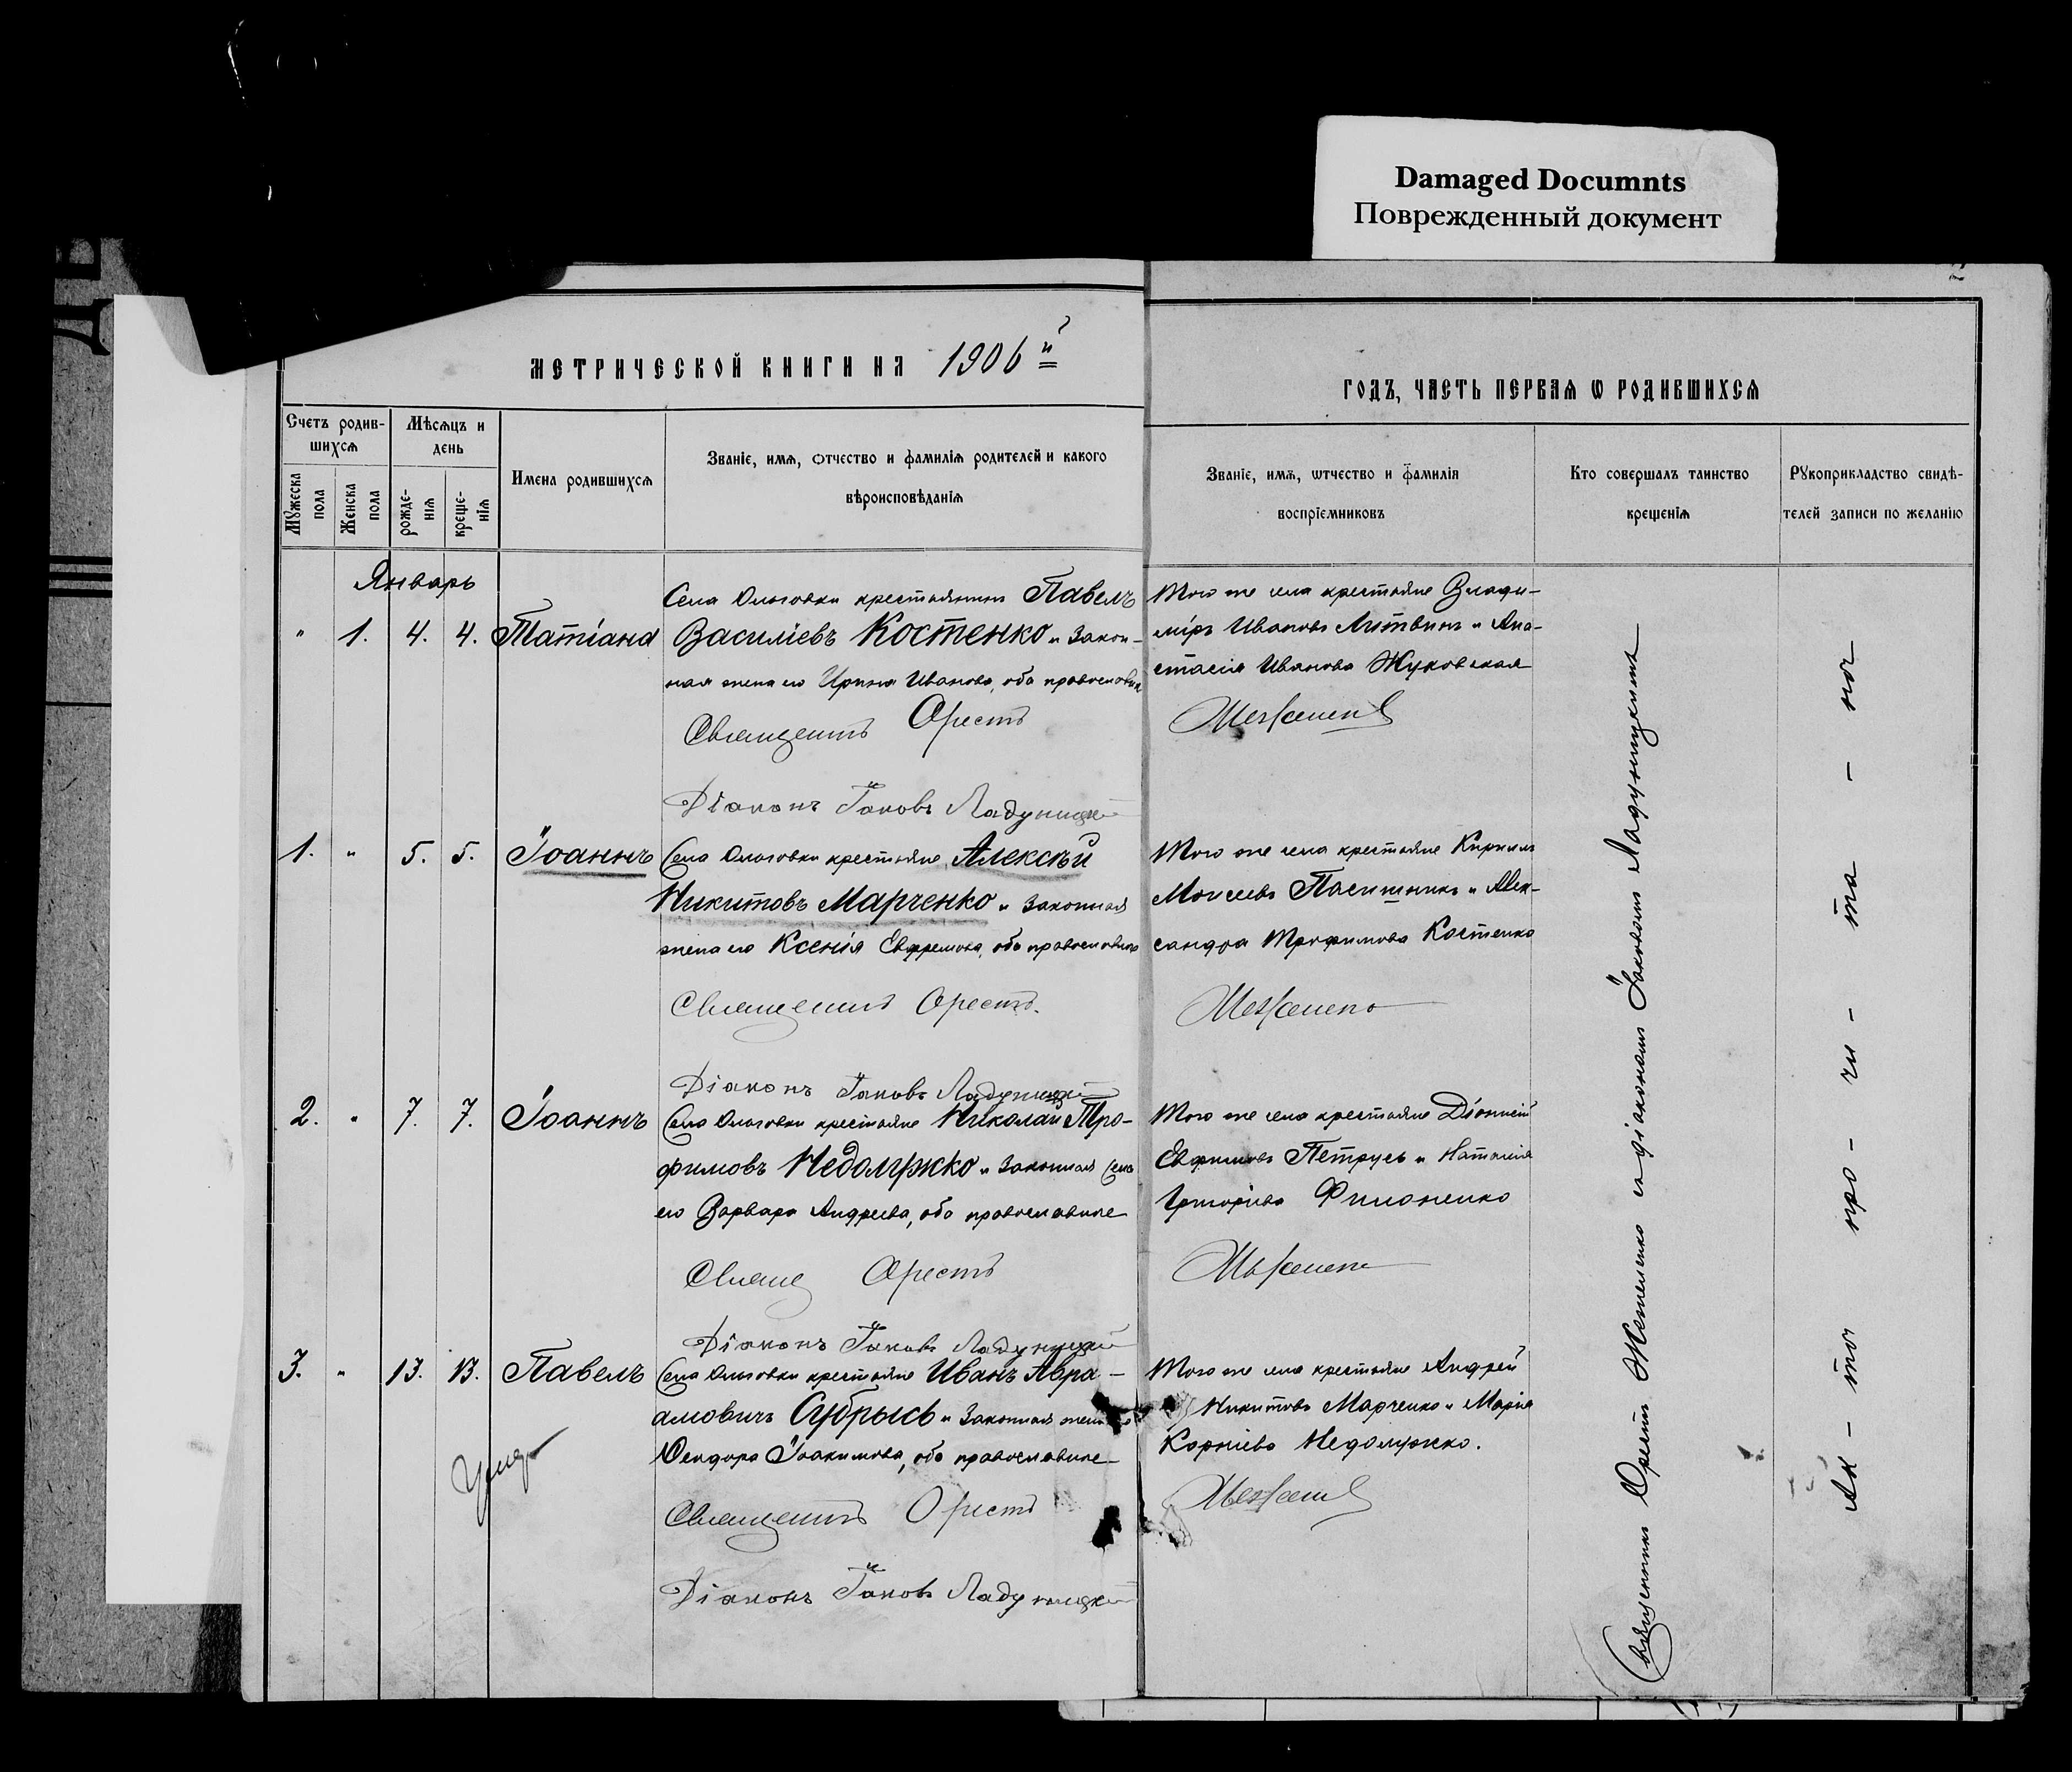 Damaged Documnts
Поврежденный документ
МЕТРИЧЕСКОЙ КНИГИ НА 1906й
ГОДЪ, ЧАСТЬ ПЕРВАЯ Ѡ РОДИВШИХСЯ
Счетъ родив-
шихся
Мѣсяцъ и
день
Мужеска
пола
Женска
пола
рожде-
нія
креще-
нія
Имена родившихся
Званіе, имя, отчество и фамилія родителей и какого
вѣроисповѣданія
Званіе, имя, ѡтчество и фамилія
воспріемниковъ
Кто совершалъ таинство
крещенія
Рукоприкладство свидѣ-
телей записи по желанію
Январь
" 1. 4. 4. Татіана
Села Ольговки крестьянинъ Павелъ
Василіевъ Костенко и закон-
ная жена его Ирина Иванова, оба православн
Священникъ Орестъ
Діаконъ Іаковъ Ладуницкій
Того же села крестьяне Влади-
міръ Ивановъ Литвинъ и Ана-
стасія Иванова Жуковская
1. " 5. 5. Іоаннъ
Села Ольговки крестьяне Алексѣй
Никитовъ Марченко и законная
жена его Ксенія Евфремова, оба православные
Священникъ Орестъ
Діаконъ Іаковъ Ладуницкій
Того же села крестьяне Кириллъ
Моисеевъ Пасишникъ и Алек-
сандра Трофимова Костенко
2. " 7. 7. Іоаннъ
Села Ольговки крестьяне Николай Тро-
фимовъ Недолужко и законная
его Варвара Андреева, оба православные
Свящ Орестъ
Діаконъ Іаковъ Ладуницкій
Того же села крестьяне Діонисій
Евфимовъ Петрусь и Наталія
Григоріева Филоненко
3. " 13. 13. Павелъ
Села Ольговки крестьяне Иванъ Авра-
амовичъ Субрысь и законная жена
Ѳеодора Іоакимова, оба православные
Священникъ Орестъ
Діаконъ Іаковъ Ладуницкій
Того же села крестьяне Андрей
Никитовъ Марченко и Марія
Корніева Недолужко.
Священникъ Орестъ съ діакономъ Іаковомъ Ладуницкимъ